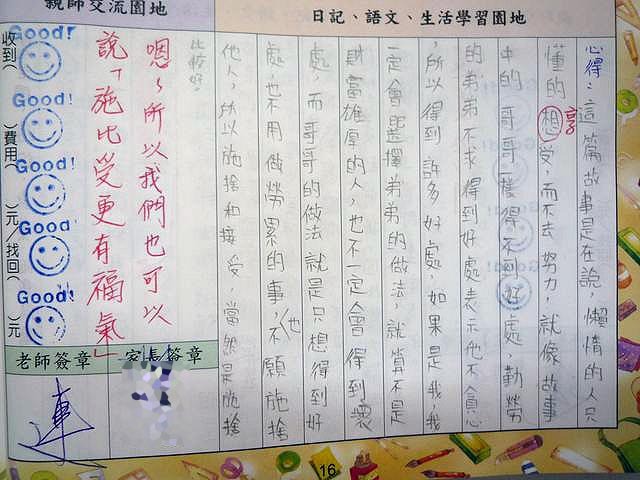 親師交流園地
日記、語文、生活學習園地
心得：這篇故事是在說，懶惰的人只
懂的想受，而不去努力，就像故事
享
中的哥哥一樣得不到好處，勤勞
的弟弟不求得到好處表示他不貪心
，所以得到許多好處，如果是我我
一定會選擇弟弟的做法，就算不是
財富雄厚的人，也不一定會得到壞
處，而哥哥的做法就是只想得到好
處，也不用做勞累的事，也不願施捨
他人，所以施捨和接受，當然是施捨
比較好。
嗯，所以我們也可以
說「施比受更有福氣」
Good!
Good!
Good!
Good!
Good!
收到（ ）費用（ ）元/找回（ ）元
老師簽章
家長簽章
16